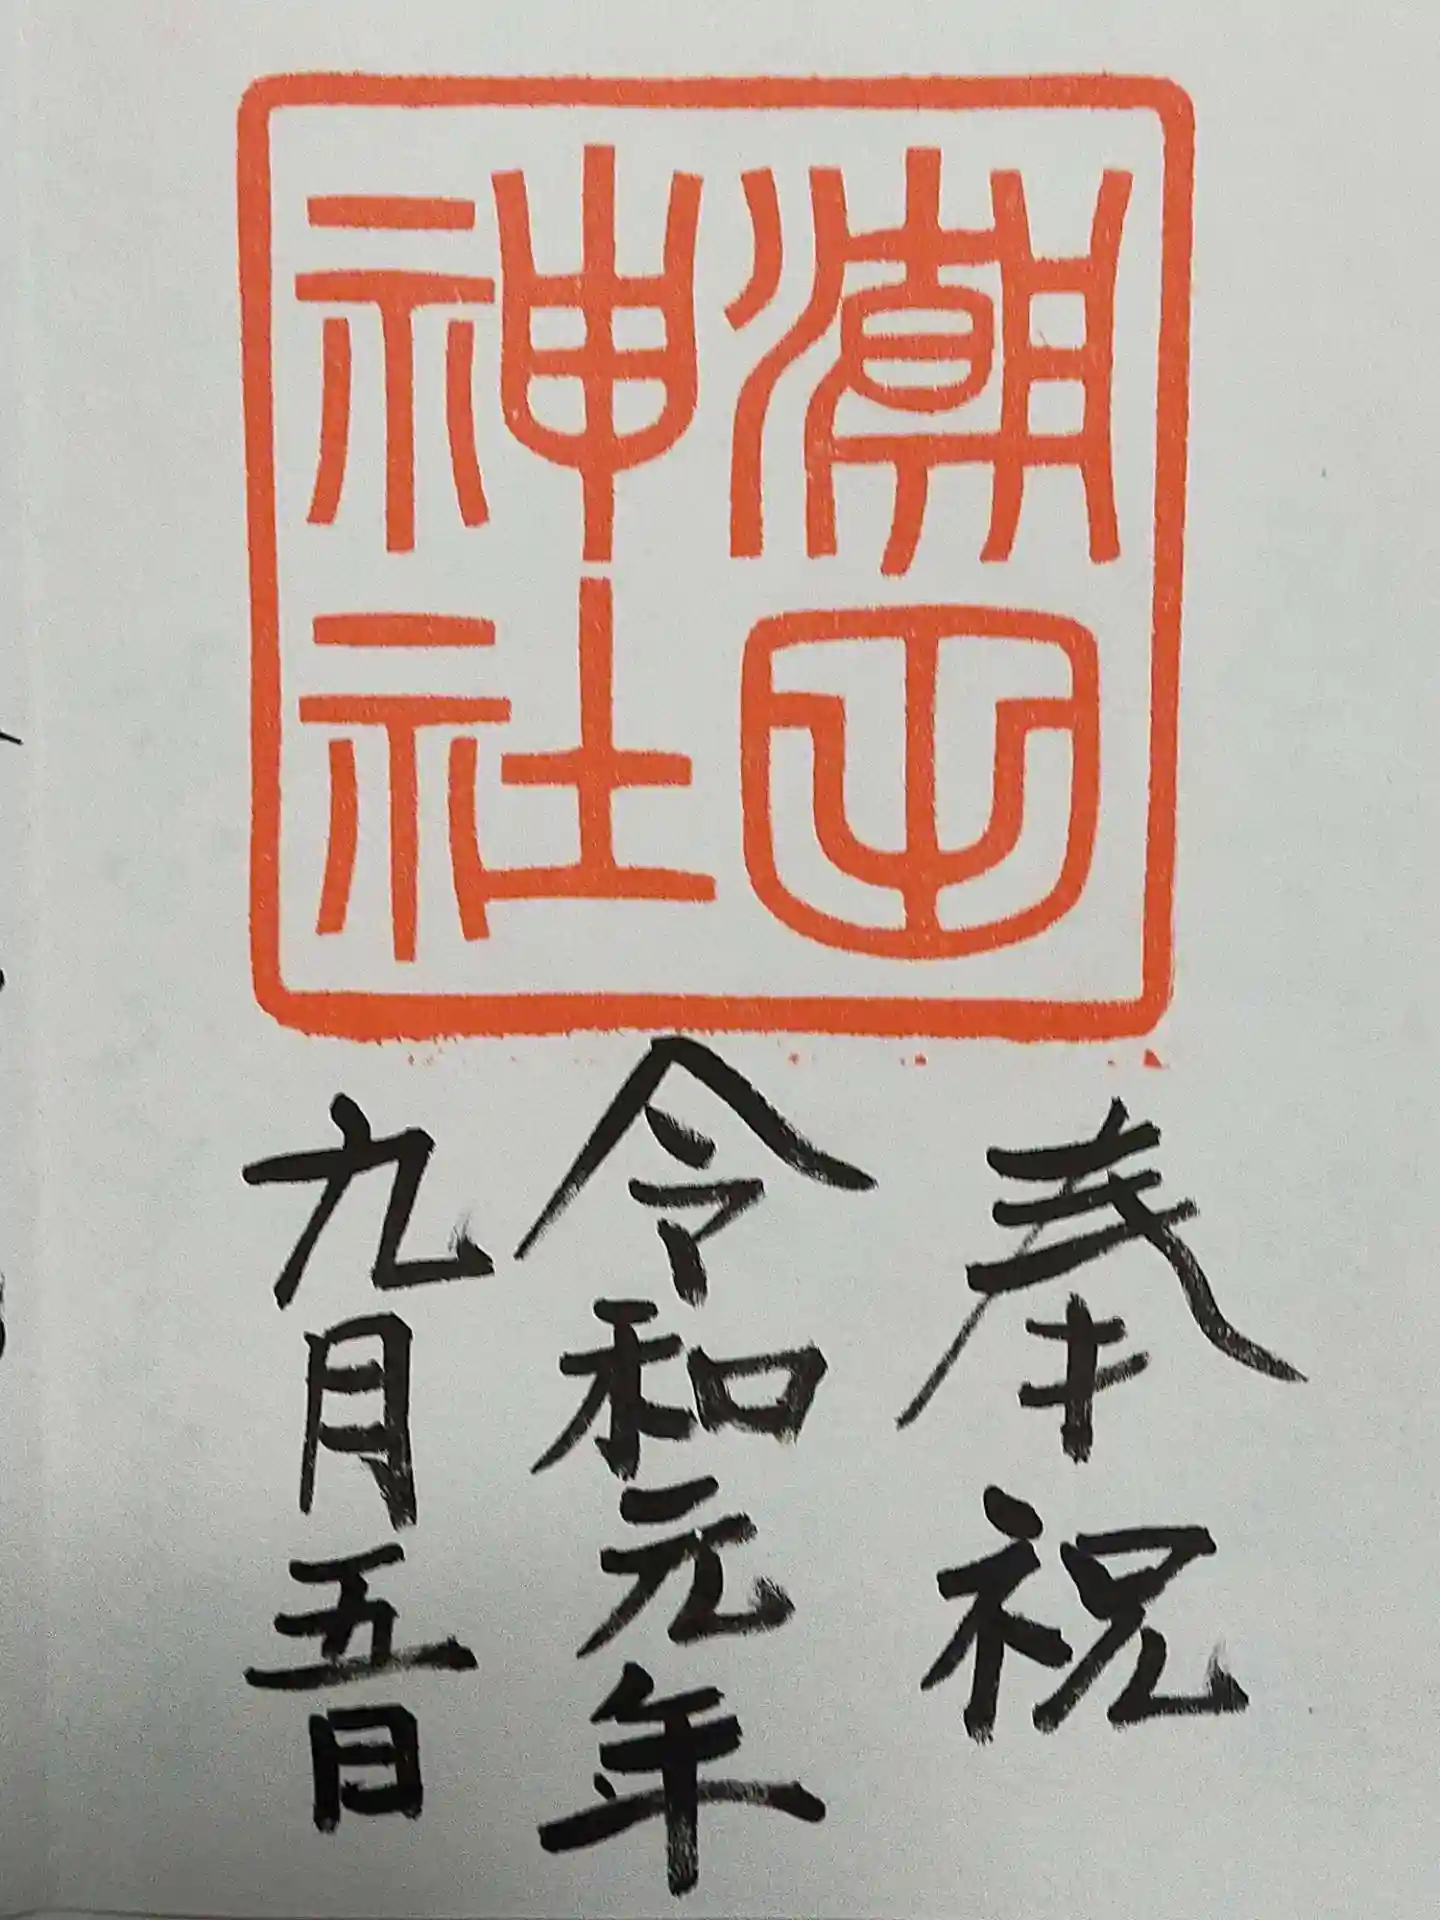 潮田
神社
奉祝
令和元年
九月五日